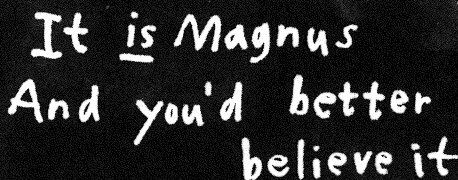 It is Magnus
And you'd better
believe it